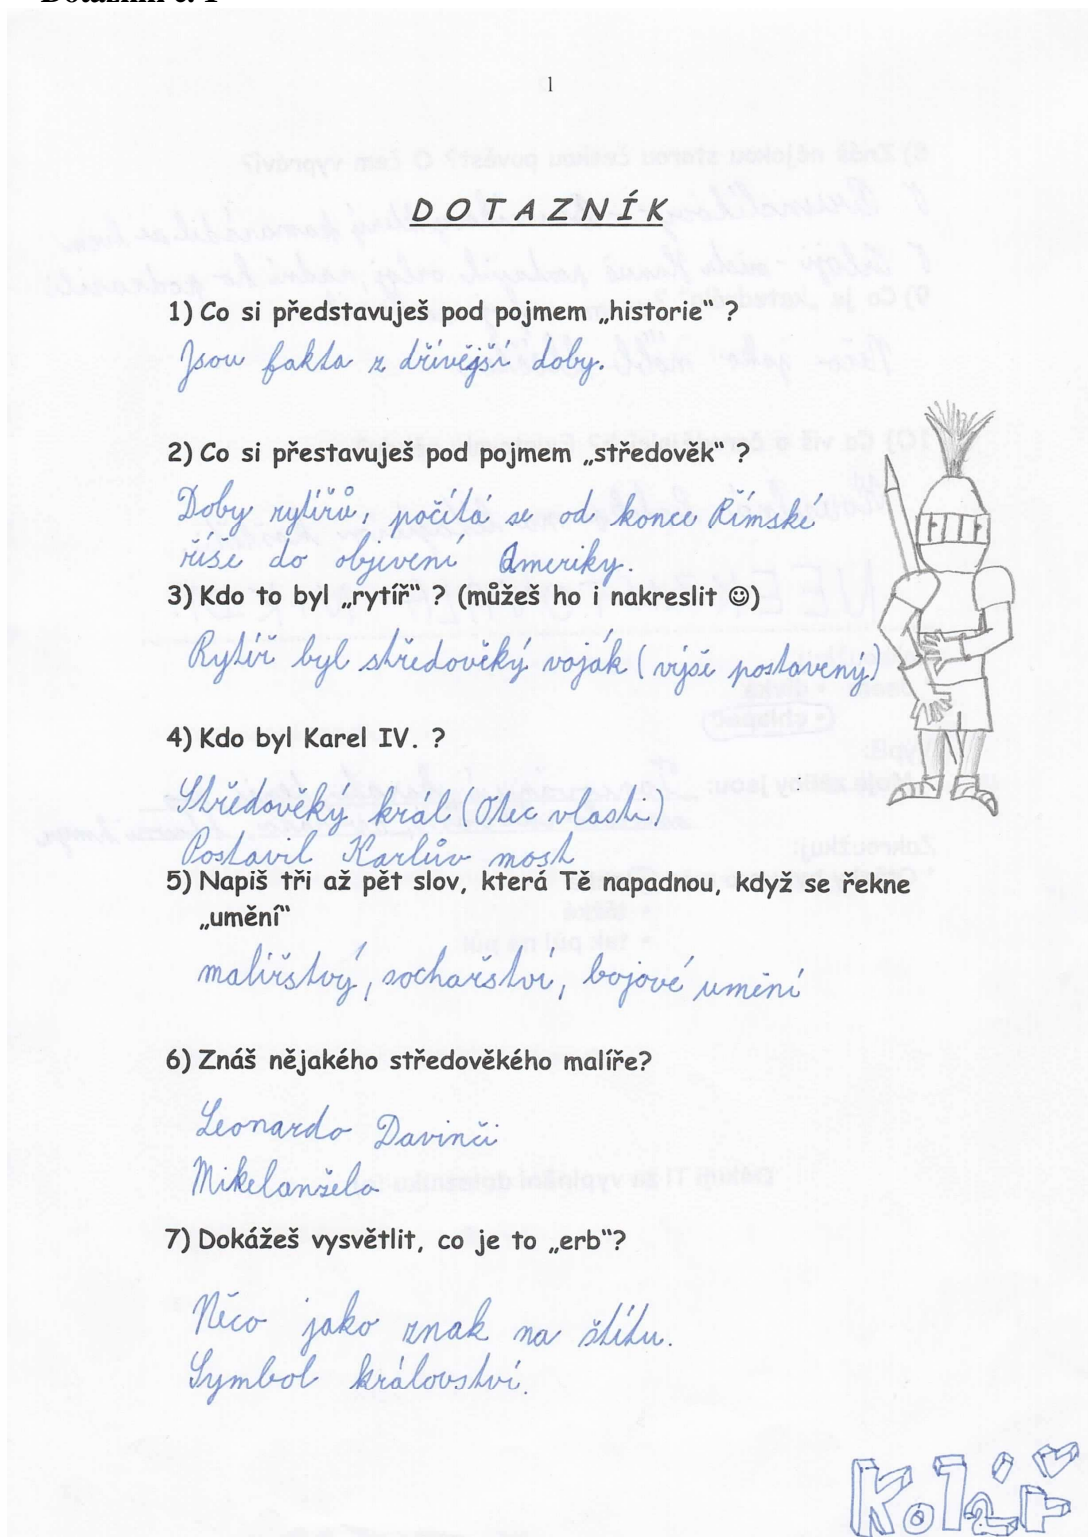 Dotazník č. 1
1
DOTAZNÍK
1) Co si představuješ pod pojmem „historie“ ?
Jsou fakta z dřívější doby.
2) Co si přestavuješ pod pojmem „středověk“ ?
Doby rytířů, počítá se od konce Římské
říše do objevení Ameriky.
3) Kdo to byl „rytíř“ ? (můžeš ho i nakreslit ☺)
Rytíř byl středověký voják (výše postavený)
4) Kdo byl Karel IV. ?
Středověký král (Otec vlasti)
Postavil Karlův most
5) Napiš tři až pět slov, která Tě napadnou, když se řekne
„umění“
malířstvý, sochařství, bojové umění
6) Znáš nějakého středověkého malíře?
Leonardo Davinči
Mikelanželo
7) Dokážeš vysvětlit, co je to „erb“?
Něco jako znak na štítu.
Symbol království.
Kolář